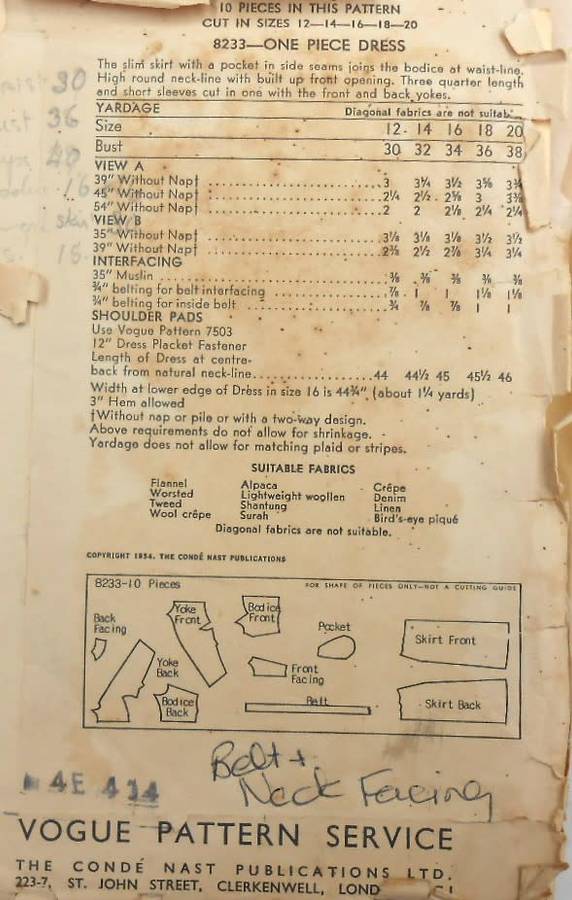 10 PIECES IN THIS PATTERN
CUT IN SIZES 12—14—16—18—20
8233—ONE PIECE DRESS
The slim skirt with a pocket in side seams joins the bodice at waist-line.
High round neck-line with built up front opening. Three quarter length
and short sleeves cut in one with the front and back yokes.
YARDAGE Diagonal fabrics are not suitab
Size 12 14 16 18 20
Bust 30 32 34 36 38
VIEW A
39" Without Nap† 3 3¼ 3½ 3⅝
45" Without Nap† 2¼ 2½ 2⅝ 3
54" Without Nap† 2 2 2⅛ 2¼ 2¼
VIEW B
35" Without Nap† 3⅛ 3⅛ 3⅛ 3½ 3½
39" Without Nap† 2⅜ 2½ 2⅞ 3¼ 3¼
INTERFACING
35" Muslin ⅜ ⅜ ⅜ ⅜ ⅜
¾" belting for belt interfacing ⅞ 1 1 1⅛ 1⅛
¾" belting for inside belt ¾ ⅞ ⅞ 1 1
SHOULDER PADS
Use Vogue Pattern 7503
12" Dress Placket Fastener
Length of Dress at centre-
back from natural neck-line 44 44½ 45 45½ 46
Width at lower edge of Dress in size 16 is 44¾" (about 1¼ yards)
3" Hem allowed
†Without nap or pile or with a two-way design.
Above requirements do not allow for shrinkage.
Yardage does not allow for matching plaid or stripes.
SUITABLE FABRICS
Flannel Alpaca Crêpe
Worsted Lightweight woollen Denim
Tweed Shantung Linen
Wool crêpe Surah Bird's-eye piqué
Diagonal fabrics are not suitable.
COPYRIGHT 1954, THE CONDÉ NAST PUBLICATIONS
8233-10 Pieces FOR SHAPE OF PIECES ONLY—NOT A CUTTING GUIDE
Back
Facing
Yoke
Front
Bodice
Front
Pocket
Skirt Front
Yoke
Back
Front
Facing
Bodice
Back
Belt
Skirt Back
Belt +
Neck Facing
4E 414
VOGUE PATTERN SERVICE
THE CONDÉ NAST PUBLICATIONS LTD.
223-7, ST. JOHN STREET, CLERKENWELL, LOND
30
36
40
16
15